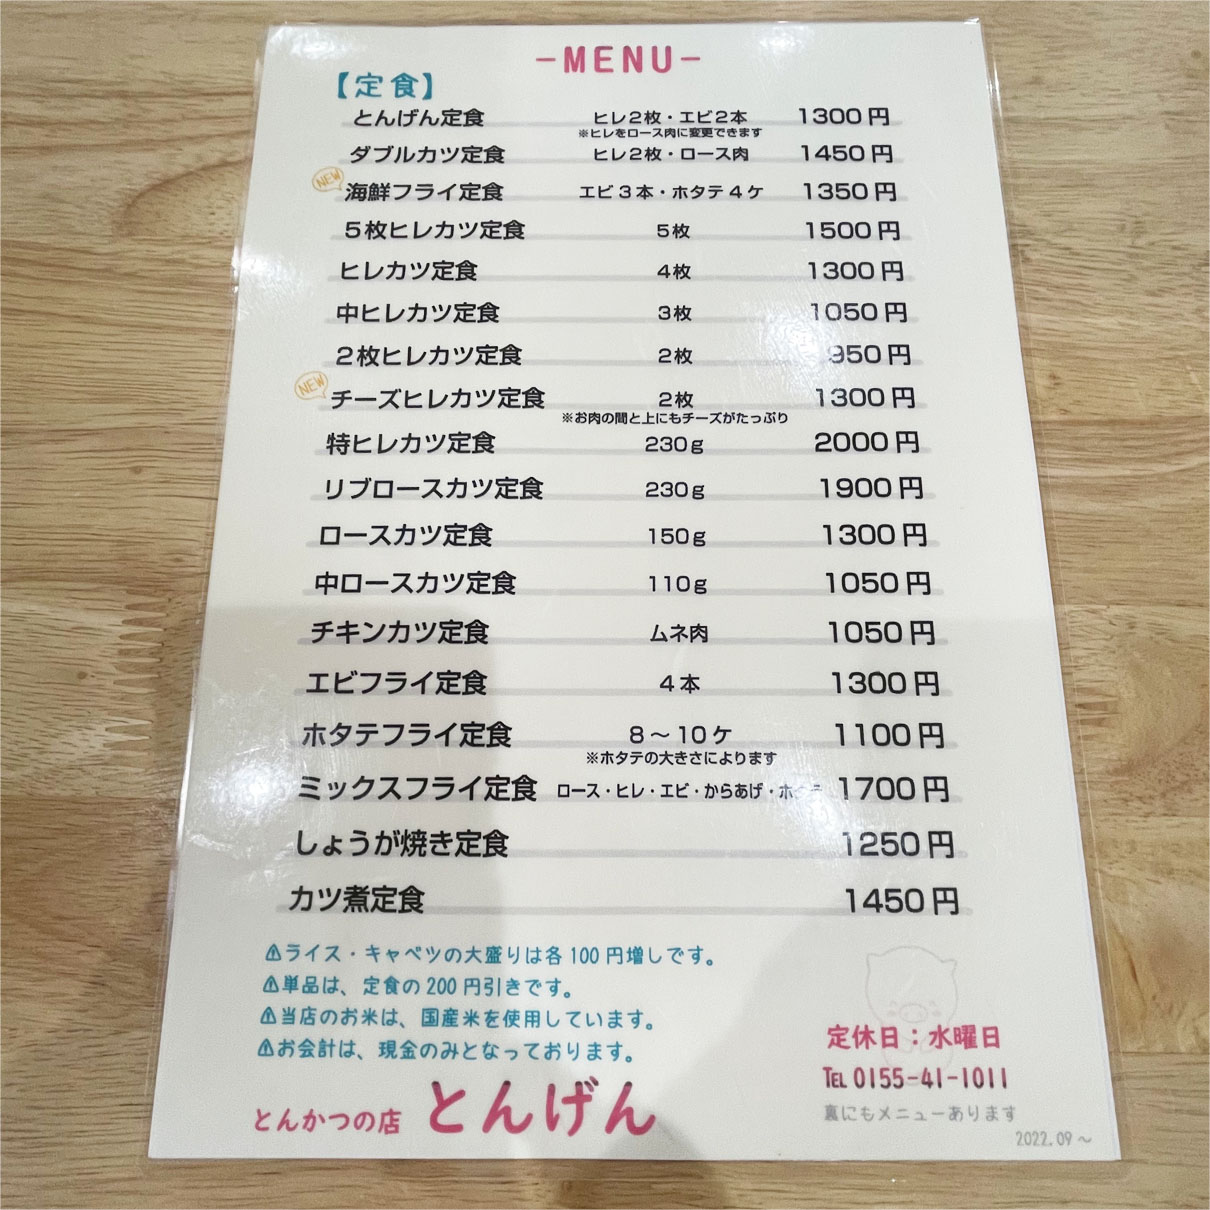 -MENU-
【定食】
とんげん定食 ヒレ2枚・エビ2本 1300円
※ヒレをロース肉に変更できます
ダブルカツ定食 ヒレ2枚・ロース肉 1450円
NEW
海鮮フライ定食 エビ3本・ホタテ4ケ 1350円
5枚ヒレカツ定食 5枚 1500円
ヒレカツ定食 4枚 1300円
中ヒレカツ定食 3枚 1050円
2枚ヒレカツ定食 2枚 950円
NEW
チーズヒレカツ定食 2枚 1300円
※お肉の間と上にもチーズがたっぷり
特ヒレカツ定食 230g 2000円
リブロースカツ定食 230g 1900円
ロースカツ定食 150g 1300円
中ロースカツ定食 110g 1050円
チキンカツ定食 ムネ肉 1050円
エビフライ定食 4本 1300円
ホタテフライ定食 8～10ケ 1100円
※ホタテの大きさによります
ミックスフライ定食 ロース・ヒレ・エビ・からあげ・ホタテ 1700円
しょうが焼き定食 1250円
カツ煮定食 1450円
⚠ライス・キャベツの大盛りは各100円増しです。
⚠単品は、定食の200円引きです。
⚠当店のお米は、国産米を使用しています。
⚠お会計は、現金のみとなっております。
とんかつの店 とんげん
定休日：水曜日
TEL 0155-41-1011
裏にもメニューあります
2022.09～